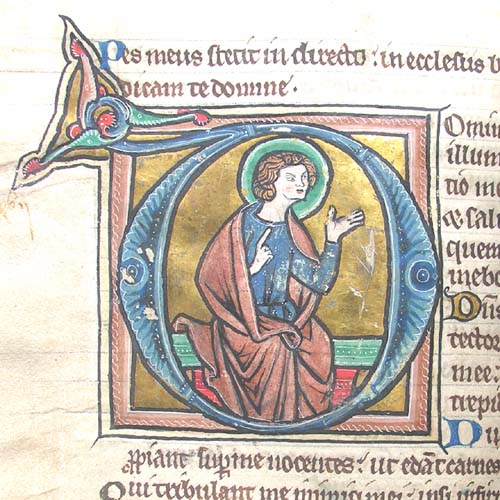 Pes meus stetit in directo : in ecclesiis b
dicam te domine .
D
Omin
illum
tio m
& salu
quem
mebo
Dñs
tector
mee :
trepi
Du
ꝓpiant suꝑ me nocentes : ut edāt carnes
Qui tribulant me inimici mei : ipsi infir